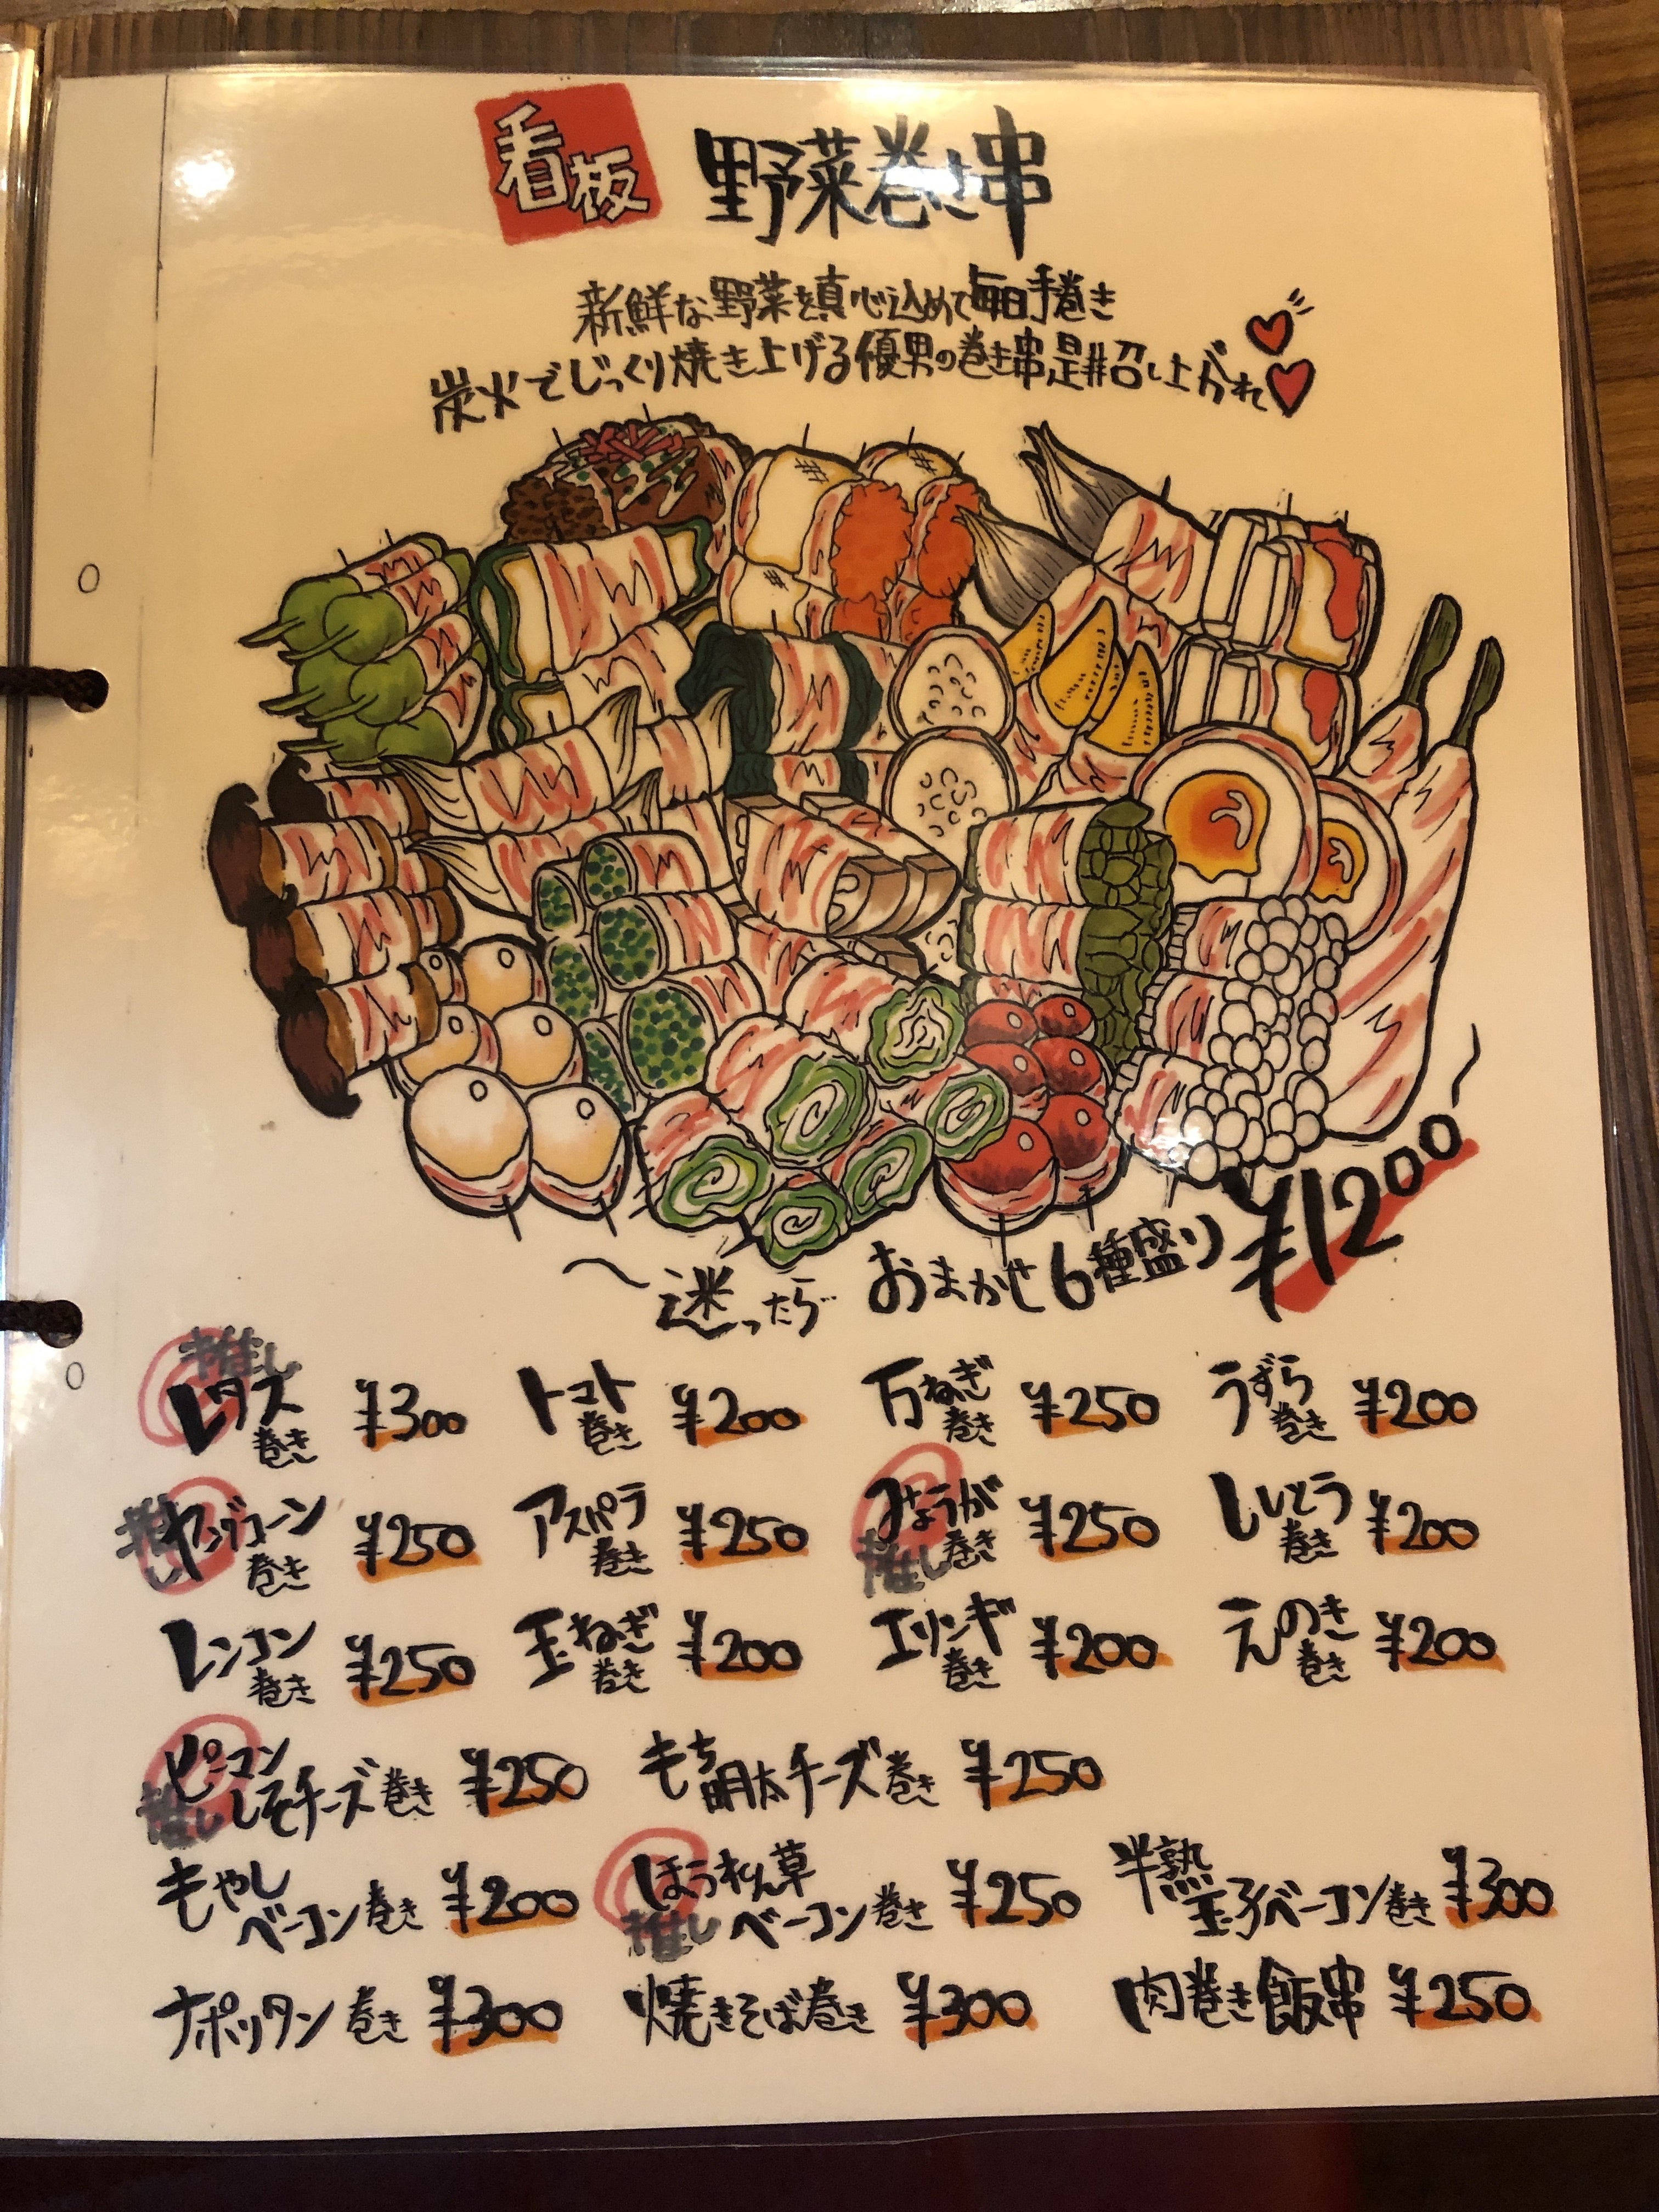 看板 野菜巻き串
新鮮な野菜を真心込めて毎日手巻き
炭火でじっくり焼き上げる優男の巻き串是非召し上がれ
～迷ったら おまかせ6種盛り ¥1200～
推し レタス巻き ¥300 トマト巻き ¥200 万ねぎ巻き ¥250 うずら巻き ¥200
推し ヤングコーン巻き ¥250 アスパラ巻き ¥250 推し みょうが巻き ¥250 ししとう巻き ¥200
レンコン巻き ¥250 玉ねぎ巻き ¥200 エリンギ巻き ¥200 えのき巻き ¥200
推し ピーマンしそチーズ巻き ¥250 もち明太チーズ巻き ¥250
もやしベーコン巻き ¥200 推し ほうれん草ベーコン巻き ¥250 半熟玉子ベーコン巻き ¥300
ナポリタン巻き ¥300 焼きそば巻き ¥300 肉巻き飯串 ¥250